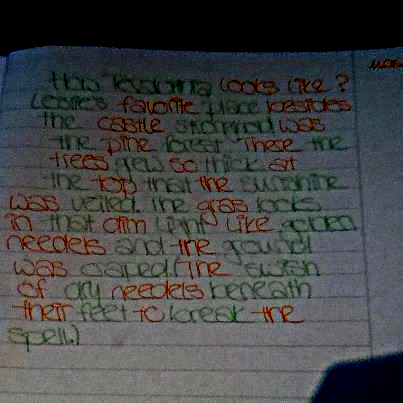 How Terabithia looks like?
Leslie's favorite place besides
the castle stronhod was
the pine forest. There the
trees grew so thick at
the top that the sunshine
was veiled. The gras looks
in that dim light like golden
needels and the ground
was caped. (The swish
of dry needels beneath
their feet to break the
spell.)